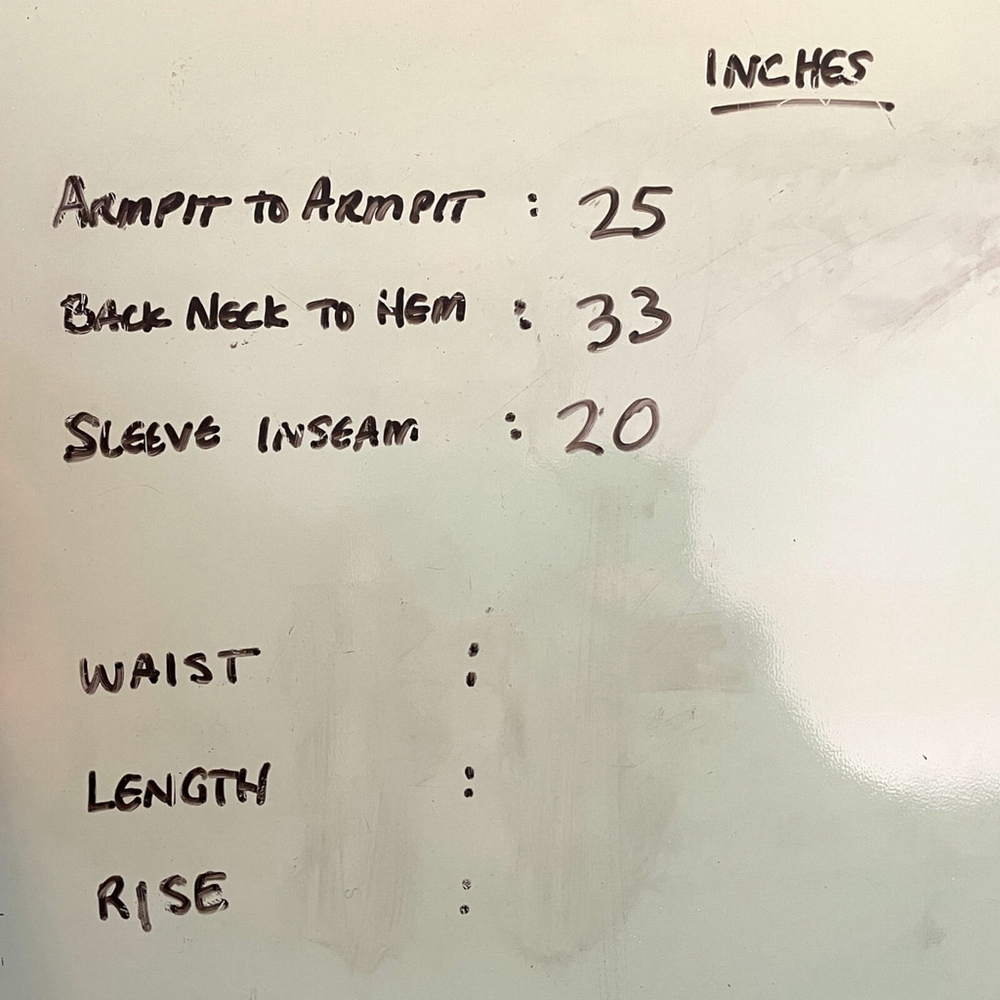 INCHES
ARMPIT TO ARMPIT : 25
BACK NECK TO HEM : 33
SLEEVE INSEAM : 20
WAIST :
LENGTH :
RISE :